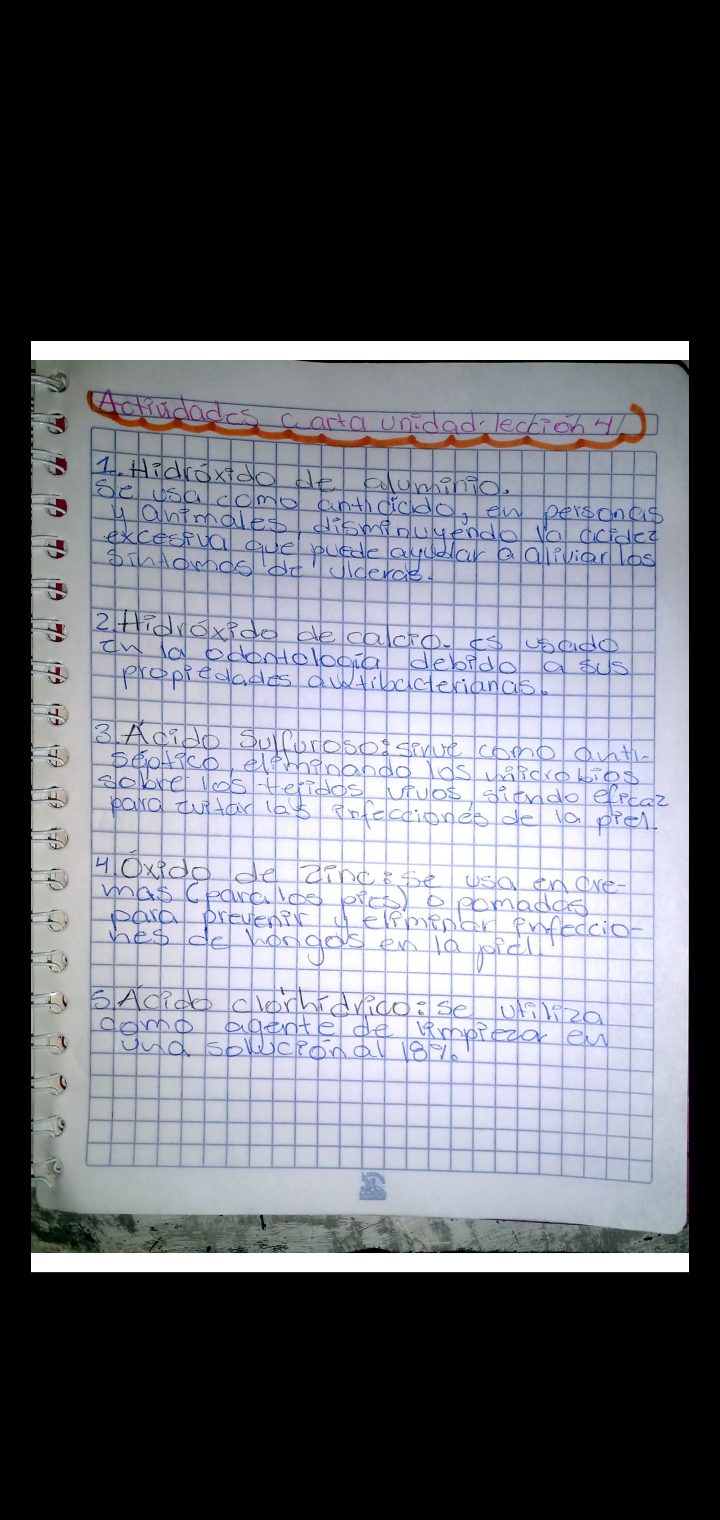 Actividades cuarta unidad: lección 4
1. Hidróxido de aluminio.
Se usa como antiácido, en personas
y animales, disminuyendo la acidez
excesiva que puede ayudar a aliviar los
síntomas de úlceras.
2. Hidróxido de calcio. es usado
en la odontología debido a sus
propiedades antibacterianas.
3. Ácido Sulfuroso: sirve como anti-
séptico, eliminando los microbios
sobre los tejidos vivos, siendo eficaz
para evitar las infecciones de la piel.
4. Óxido de zinc: se usa en cre-
mas (para los pies) o pomadas
para prevenir y eliminar infeccio-
nes de hongos en la piel.
5. Ácido clorhídrico: se utiliza
como agente de limpieza en
una solución al 18%.